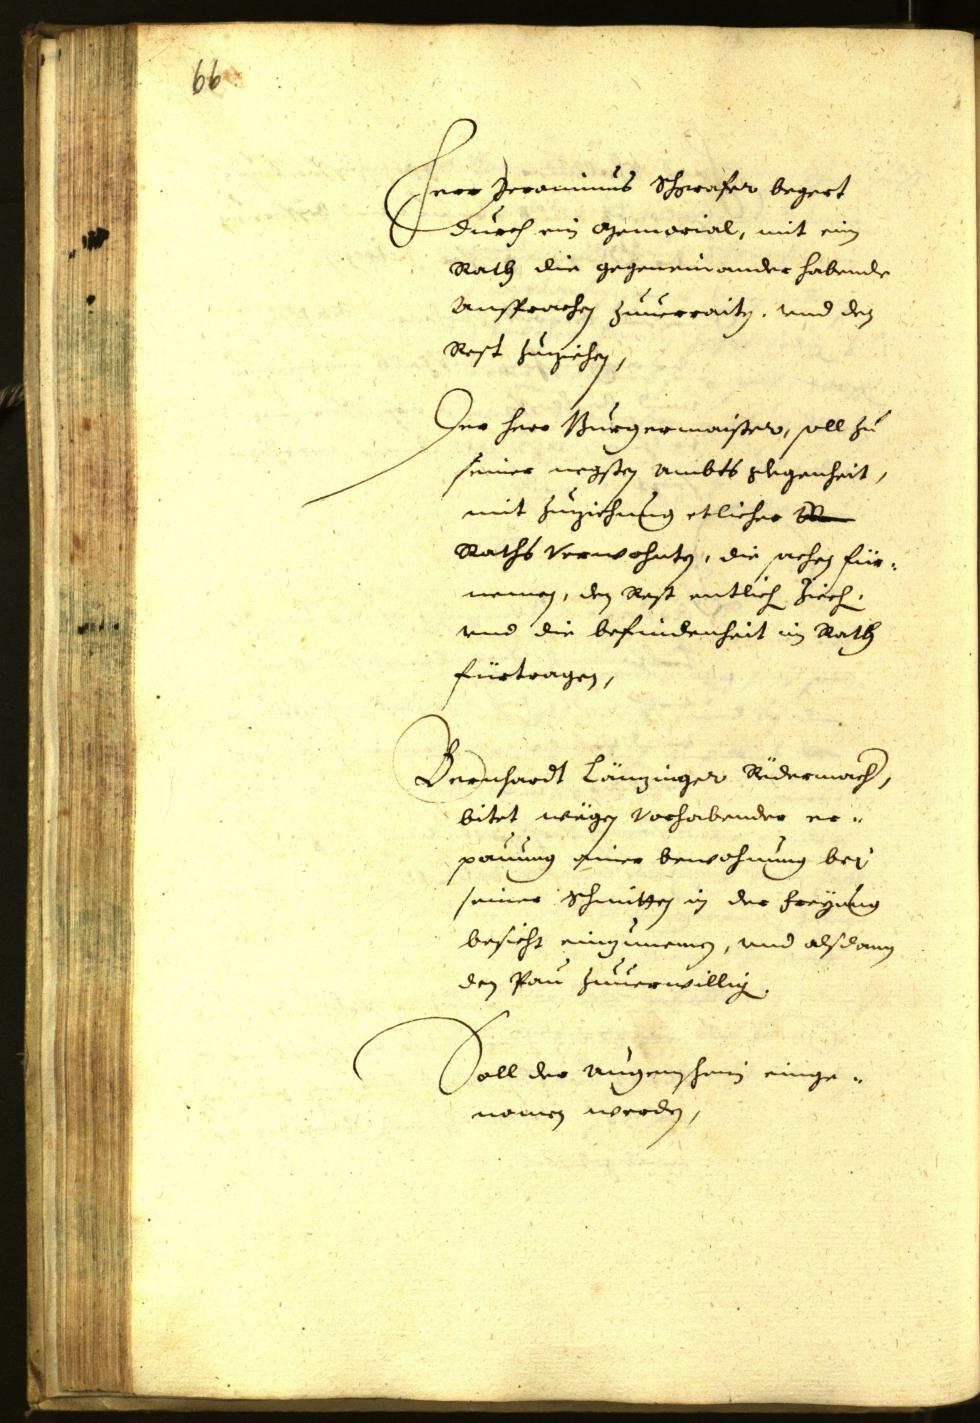 66
Herr Jeronimus Schrafer begert
durch ein memorial, mit eim
Rath die gegeneinander habende
Ansprachen zuuerraiten. vnd den
Rest zuziehen,
Der herr Burgermaister, soll zu
seiner negsten ambts glegenheit,
mit zuziehung etlicher
Raths verwohnten, die sachen für-
nemen, den Rest entlich ziech.
vnd die befindenheit im Rath
fürtragen,
Bernhardt Länzinger Rüdermach,
bitet wegen vorhabender er-
pauung einer bewohnung bei
seiner Schmitten in der freyung
besicht einzunemen, vnd alsdann
den Pau zuuerwillig.
Soll der augenschein einge-
nomen werden,